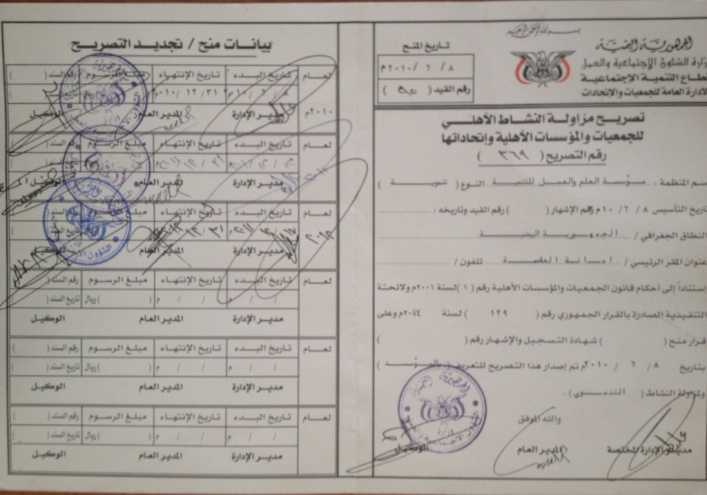 بسم الله الرحمن الرحيم
الجمهورية اليمنية
وزارة الشئون الاجتماعية والعمل
قطاع التنمية الاجتماعية
الإدارة العامة للجمعيات والإتحادات
تاريخ المنح
٨ / ٦ / ٢٠١٠م
رقم القيد (
تصريح مزاولة النشاط الأهلي
للجمعيات والمؤسسات الأهلية وإتحاداتها
رقم التصريح ( ٣٦٩ )
إسم المنظمة : مؤسسة العلم والعمل للتنمية النوع ( تنموية )
تاريخ التأسيس ٨ / ٦ / ٢٠١٠م رقم الإشهار ( ) رقم القيد وتاريخه :
النطاق الجغرافي / الجمهورية اليمنية
عنوان المقر الرئيسي / امانة العاصمة تلفون /
إستناداً إلى أحكام قانون الجمعيات والمؤسسات الأهلية رقم ( ١ ) لسنة ٢٠٠١م ولائحتة
التنفيذية الصادرة بالقرار الجمهوري رقم ( ١٢٩ ) لسنة ٢٠٠٤م وعلى
قرار منح ( ) شهادة التسجيل والإشهار رقم (
بتاريخ ٨ / ٦ / ٢٠١٠م تم إصدار هذا التصريح للتعريف ( بالمؤسسة )
ولمزاولة النشاط ( التنموي ) .
والله الموفق
مدير الإدارة المختصة المدير العام الوكيل
بيانات منح / تجديد التصريح
لعام تاريخ البدء تاريخ الإنتهاء مبلغ الرسوم رقم السند (
٢٠١٠م ٨ / ٦ / ٢٠١٠م ٣١ / ١٢ / ٢٠١٠م
مدير الإدارة المدير العام الوكيل
لعام تاريخ البدء تاريخ الإنتهاء مبلغ الرسوم رقم السند (
مدير الإدارة المدير العام
لعام تاريخ البدء تاريخ الإنتهاء
مدير الإدارة المدير العام
لعام تاريخ البدء تاريخ الإنتهاء مبلغ الرسوم رقم السند ( )
/ / م / / م ( ) ريال تاريخ السند ( )
مدير الإدارة المدير العام الوكيل
لعام تاريخ البدء تاريخ الإنتهاء مبلغ الرسوم رقم السند ( )
/ / م / / م ( ) ريال تاريخ السند ( )
مدير الإدارة المدير العام الوكيل
لعام تاريخ البدء تاريخ الإنتهاء مبلغ الرسوم رقم السند ( )
/ / م / / م ( ) ريال تاريخ السند ( )
مدير الإدارة المدير العام الوكيل